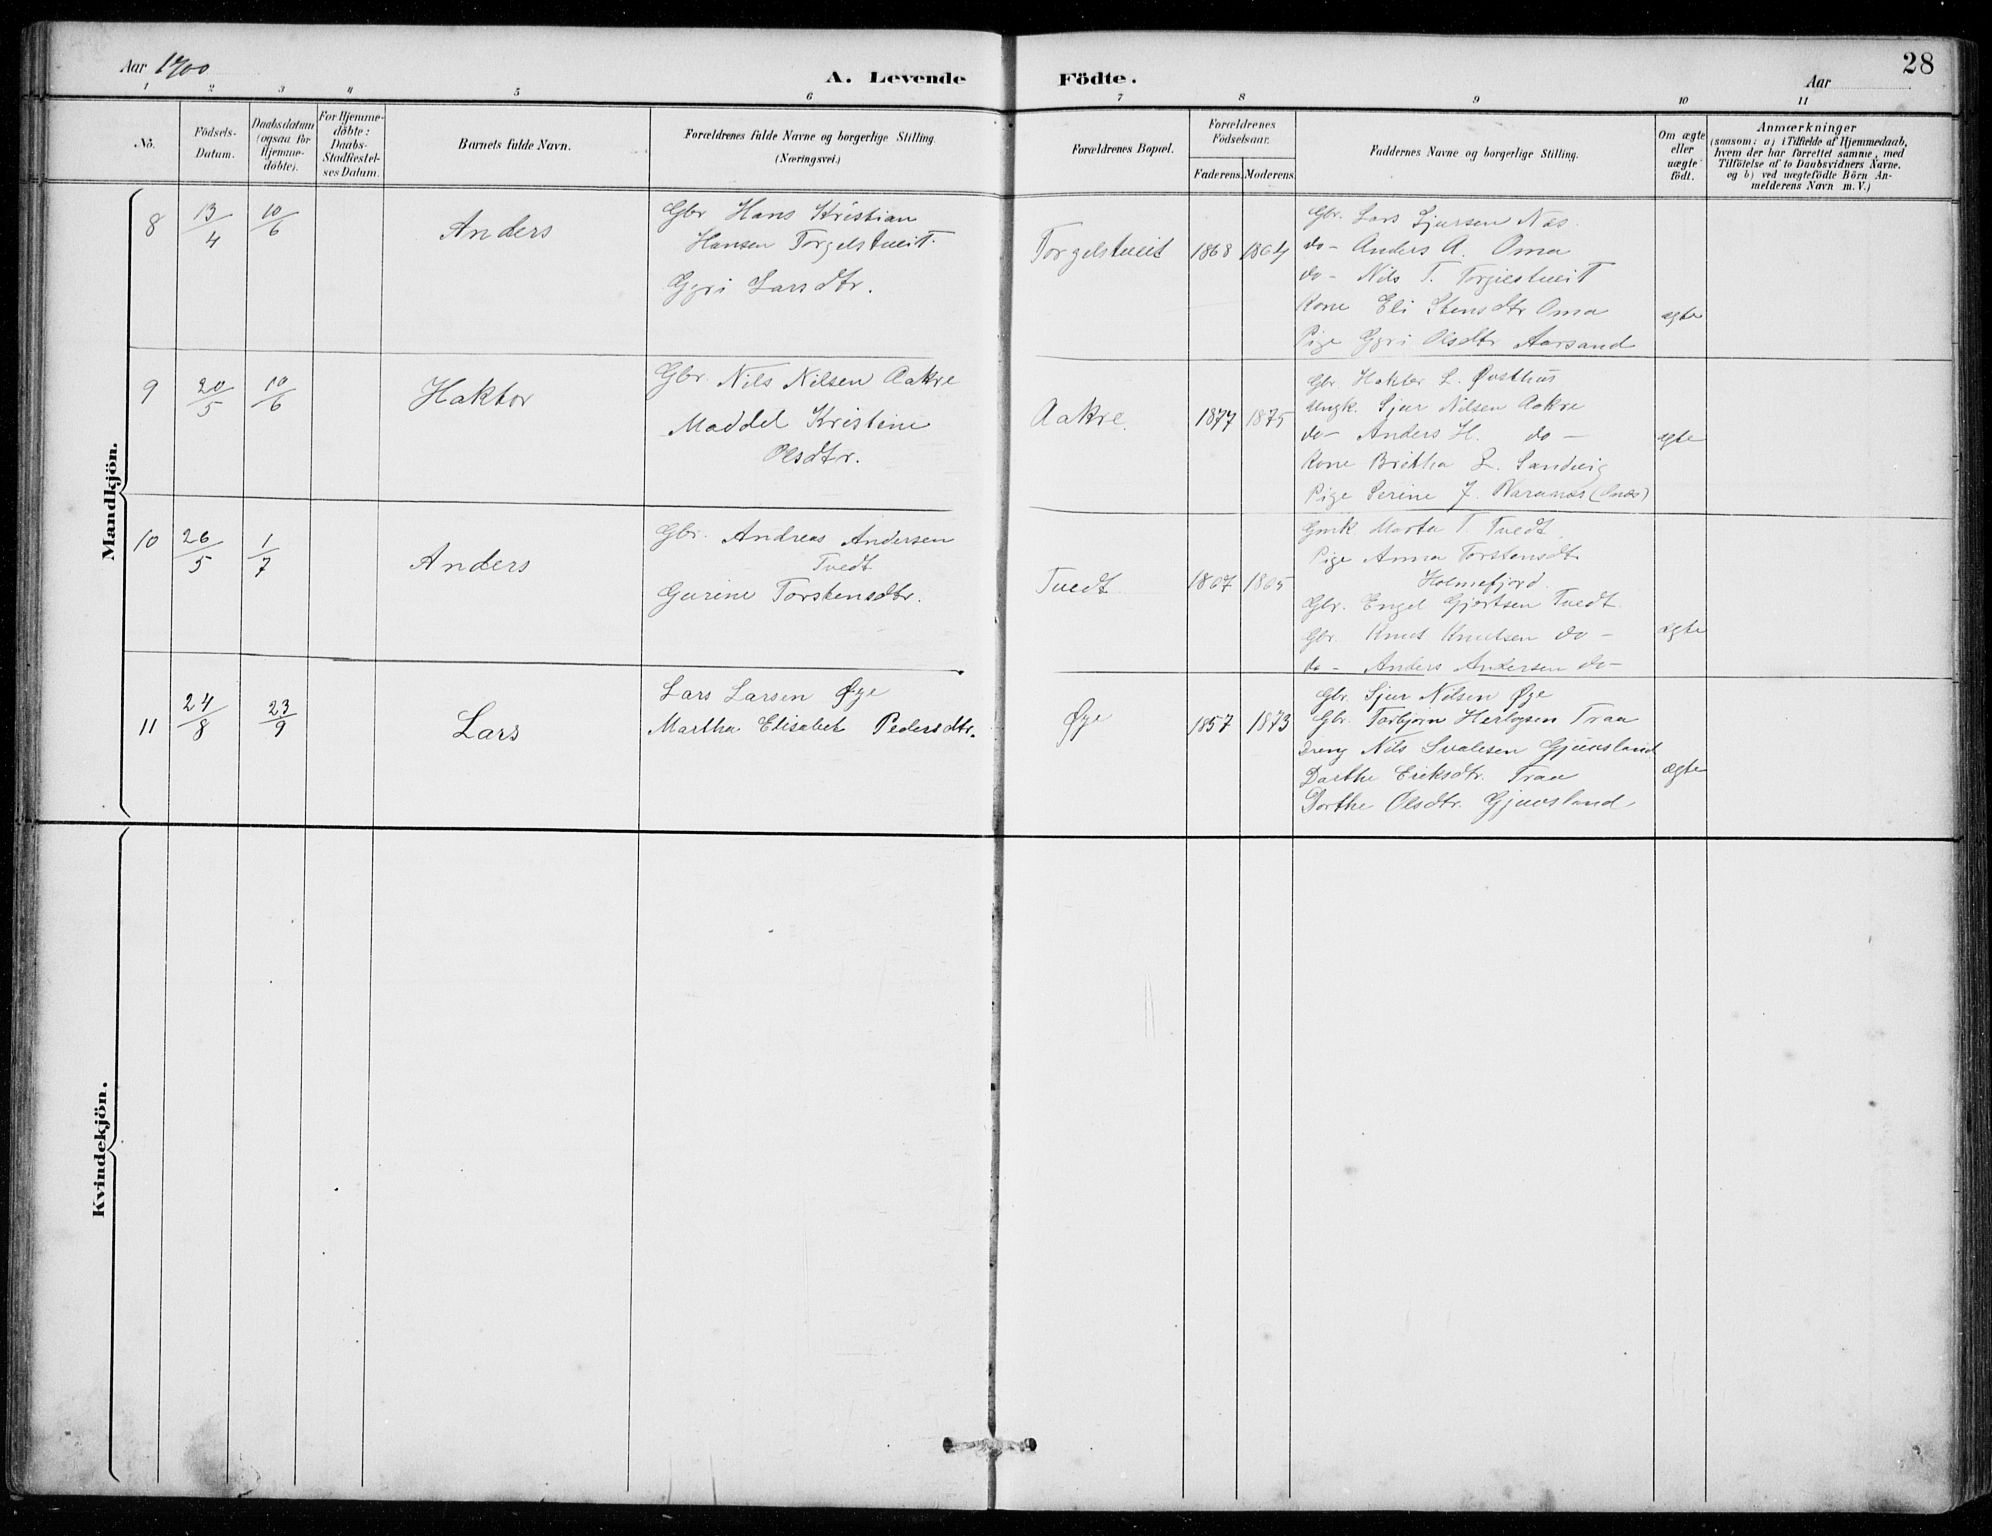 28
Aar 1900
A. Levende Födte.
Aar
1 2 3 4 5 6 7 8 9 10 11
No.
Födsels-Datum.
Daabsdatum (ogsaa for Hjemme-döbte).
For Hjemme-döbte: Daabs-Stadfæstel-ses Datum.
Barnets fulde Navn.
Forældrenes fulde Navne og borgerlige Stilling.
(Næringsvei.)
Forældrenes Bopæl.
Forældrenes Födselsaar.
Faderens. Moderens.
Faddernes Navne og borgerlige Stilling.
Om ægte eller uægte født.
Anmærkninger
(saasom: a) i Tilfælde af Hjemmedaab,
hvem der har forrettet samme, med
Tilföielse af to Daabsvidners Navne,
og b) ved uægtefödte Börn An-
melderens Navn m. V.)
Mandkjön.
8 13/4 10/6 Anders
Gbr Hans Kristian
Hansen Torgelstveit.
Gyri Larsdtr.
Torgelstveit 1868 1864
Gbr. Lars Sjursen Næs.
do- Anders A. Oma
do- Nils T. Torgilstveit
Kone Eli Stensdtr Oma
Pige Gyri Olsdtr Aarsand
ægte
9 20/5 10/6 Haktor
Gbr. Nils Nilsen Aakre
Maddel Kristine
Olsdtr.
Aakre. 1877 1875
Gbr. Haktor L. Østhus
Ungk. Sjur Nilsen Aakre
do- Anders H. do-
Kone Britha L. Sandvig
Pige Serine J.
ægte
10 26/5 1/7 Anders
Gbr. Andreas Andersen
Tvedt
Gurine Torstensdtr.
Tvedt 1867 1865
Gmk Marta T. Tvedt.
Pige Anna Torstensdtr
Holmefjord.
Gbr. Engel Gjertsen Tvedt
Gbr. Knut Knutsen do-
do- Anders Andersen do-
ægte
11 24/8 23/9 Lars
Lars Larsen Øye
Martha Elisabet Pedersdtr.
Øye 1857 1873
Gbr. Sjur Nilsen Øye
Gbr. Torbjørn Herlogsen Traa
Dreng Nils Gjuvsland
Dorthe Eriksdtr. Traa
Dorthe Olsdtr. Gjuvsland
ægte
Kvindekjön.